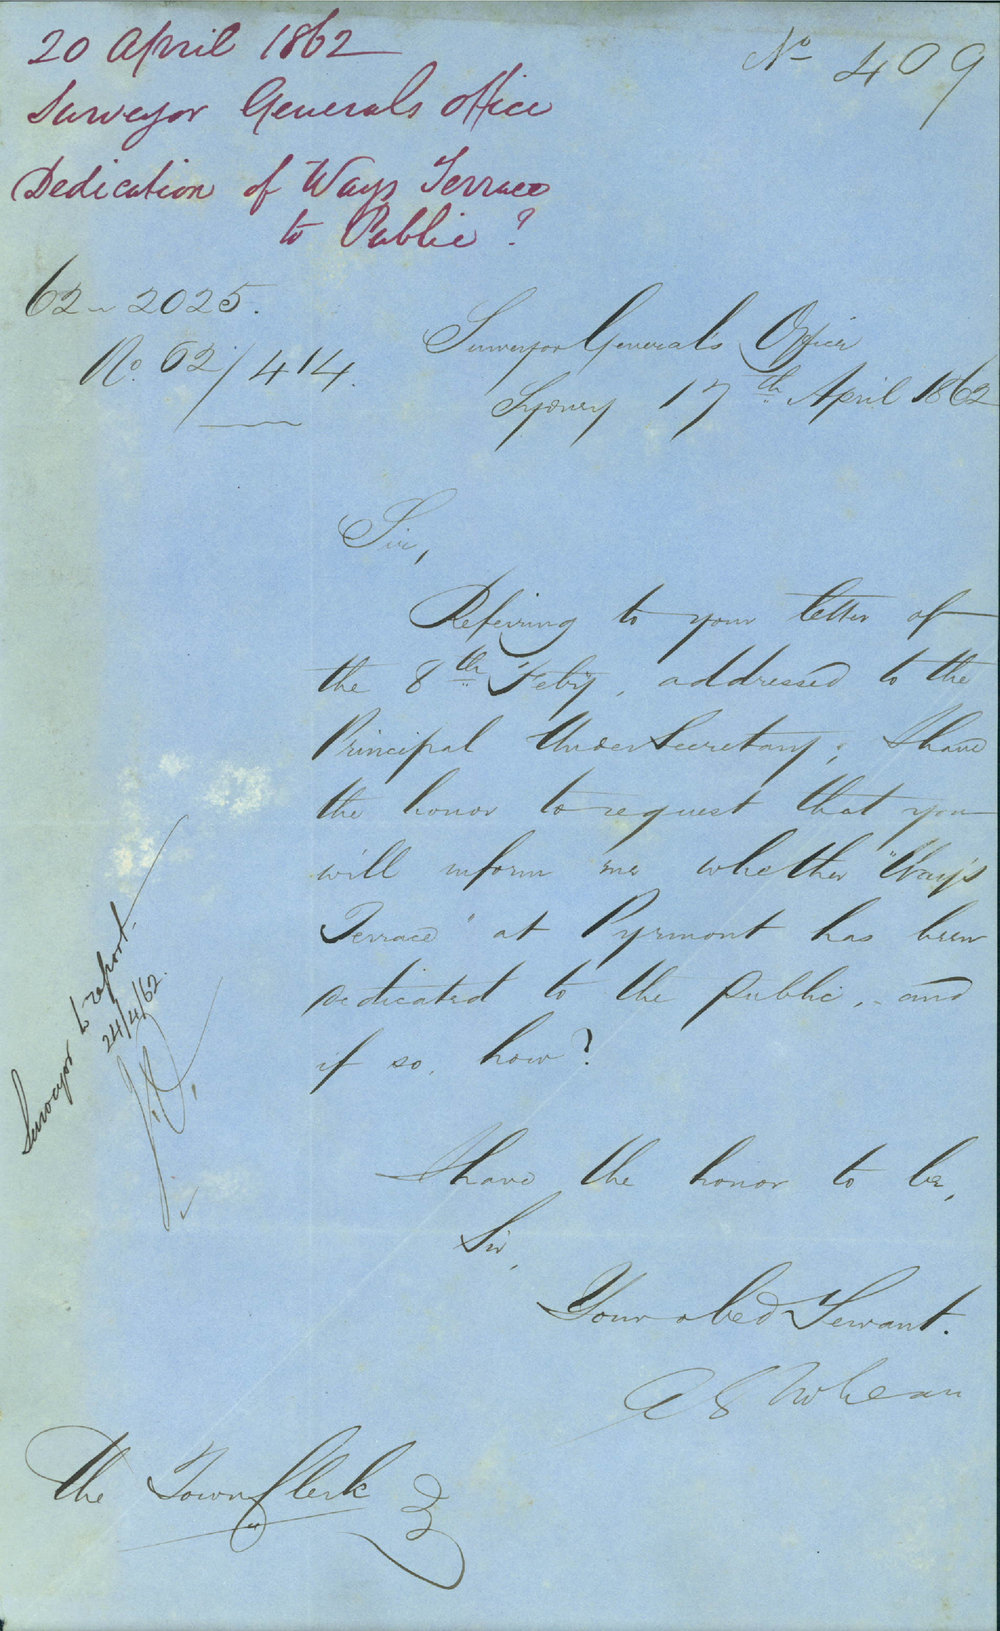 20 April 1862
Surveyor Generals office
Dedication of Ways Terrace
to Public?
No 409
62 - 2025.
No. 62/414.
Surveyor General's Office
Sydney 17th April 1862
Sir,
Referring to your letter of
the 8th Feby, addressed to the
Principal Under Secretary, I have
the honor to request that you
will inform me whether "Way's
Terrace" at Pyrmont has been
dedicated to the public, and
if so, how?
I have the honor to be,
Sir,
Your obed Servant.
The Town Clerk
Surveyor to report.
24/4/62.